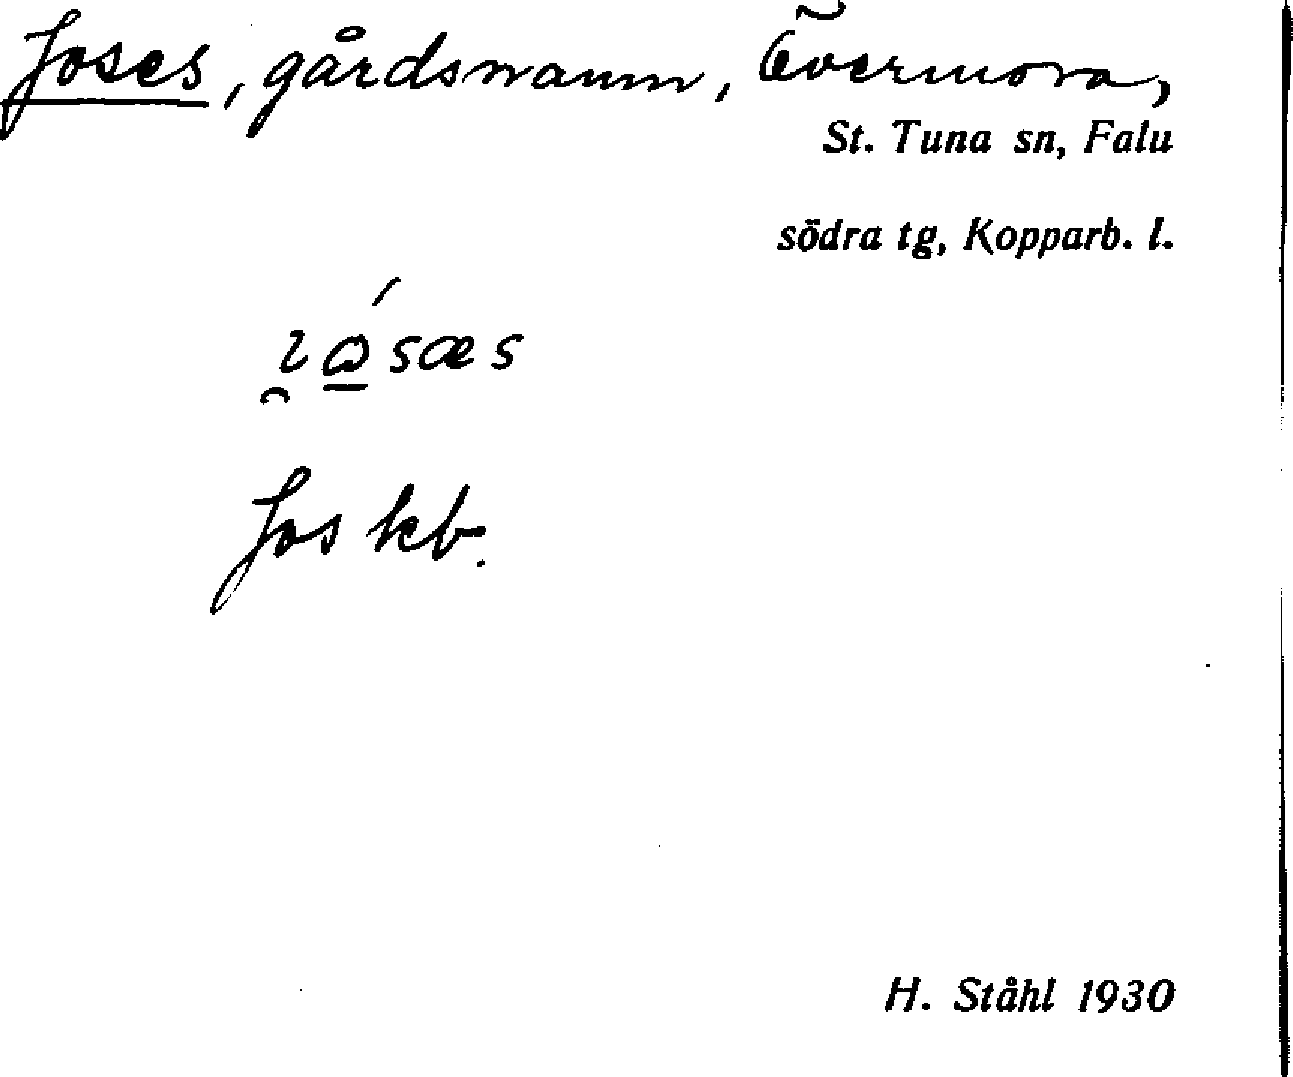 Joses, gårdsnamn, Övermora,
St. Tuna sn, Falu
södra tg, Kopparb. l.
Jos kb.
H. Ståhl 1930